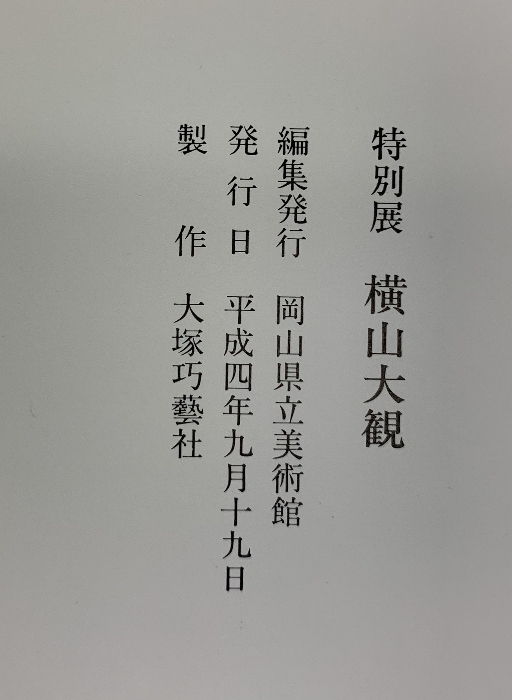 特別展 横山大観
編集発行 岡山県立美術館
発行日 平成四年九月十九日
製作 大塚巧藝社